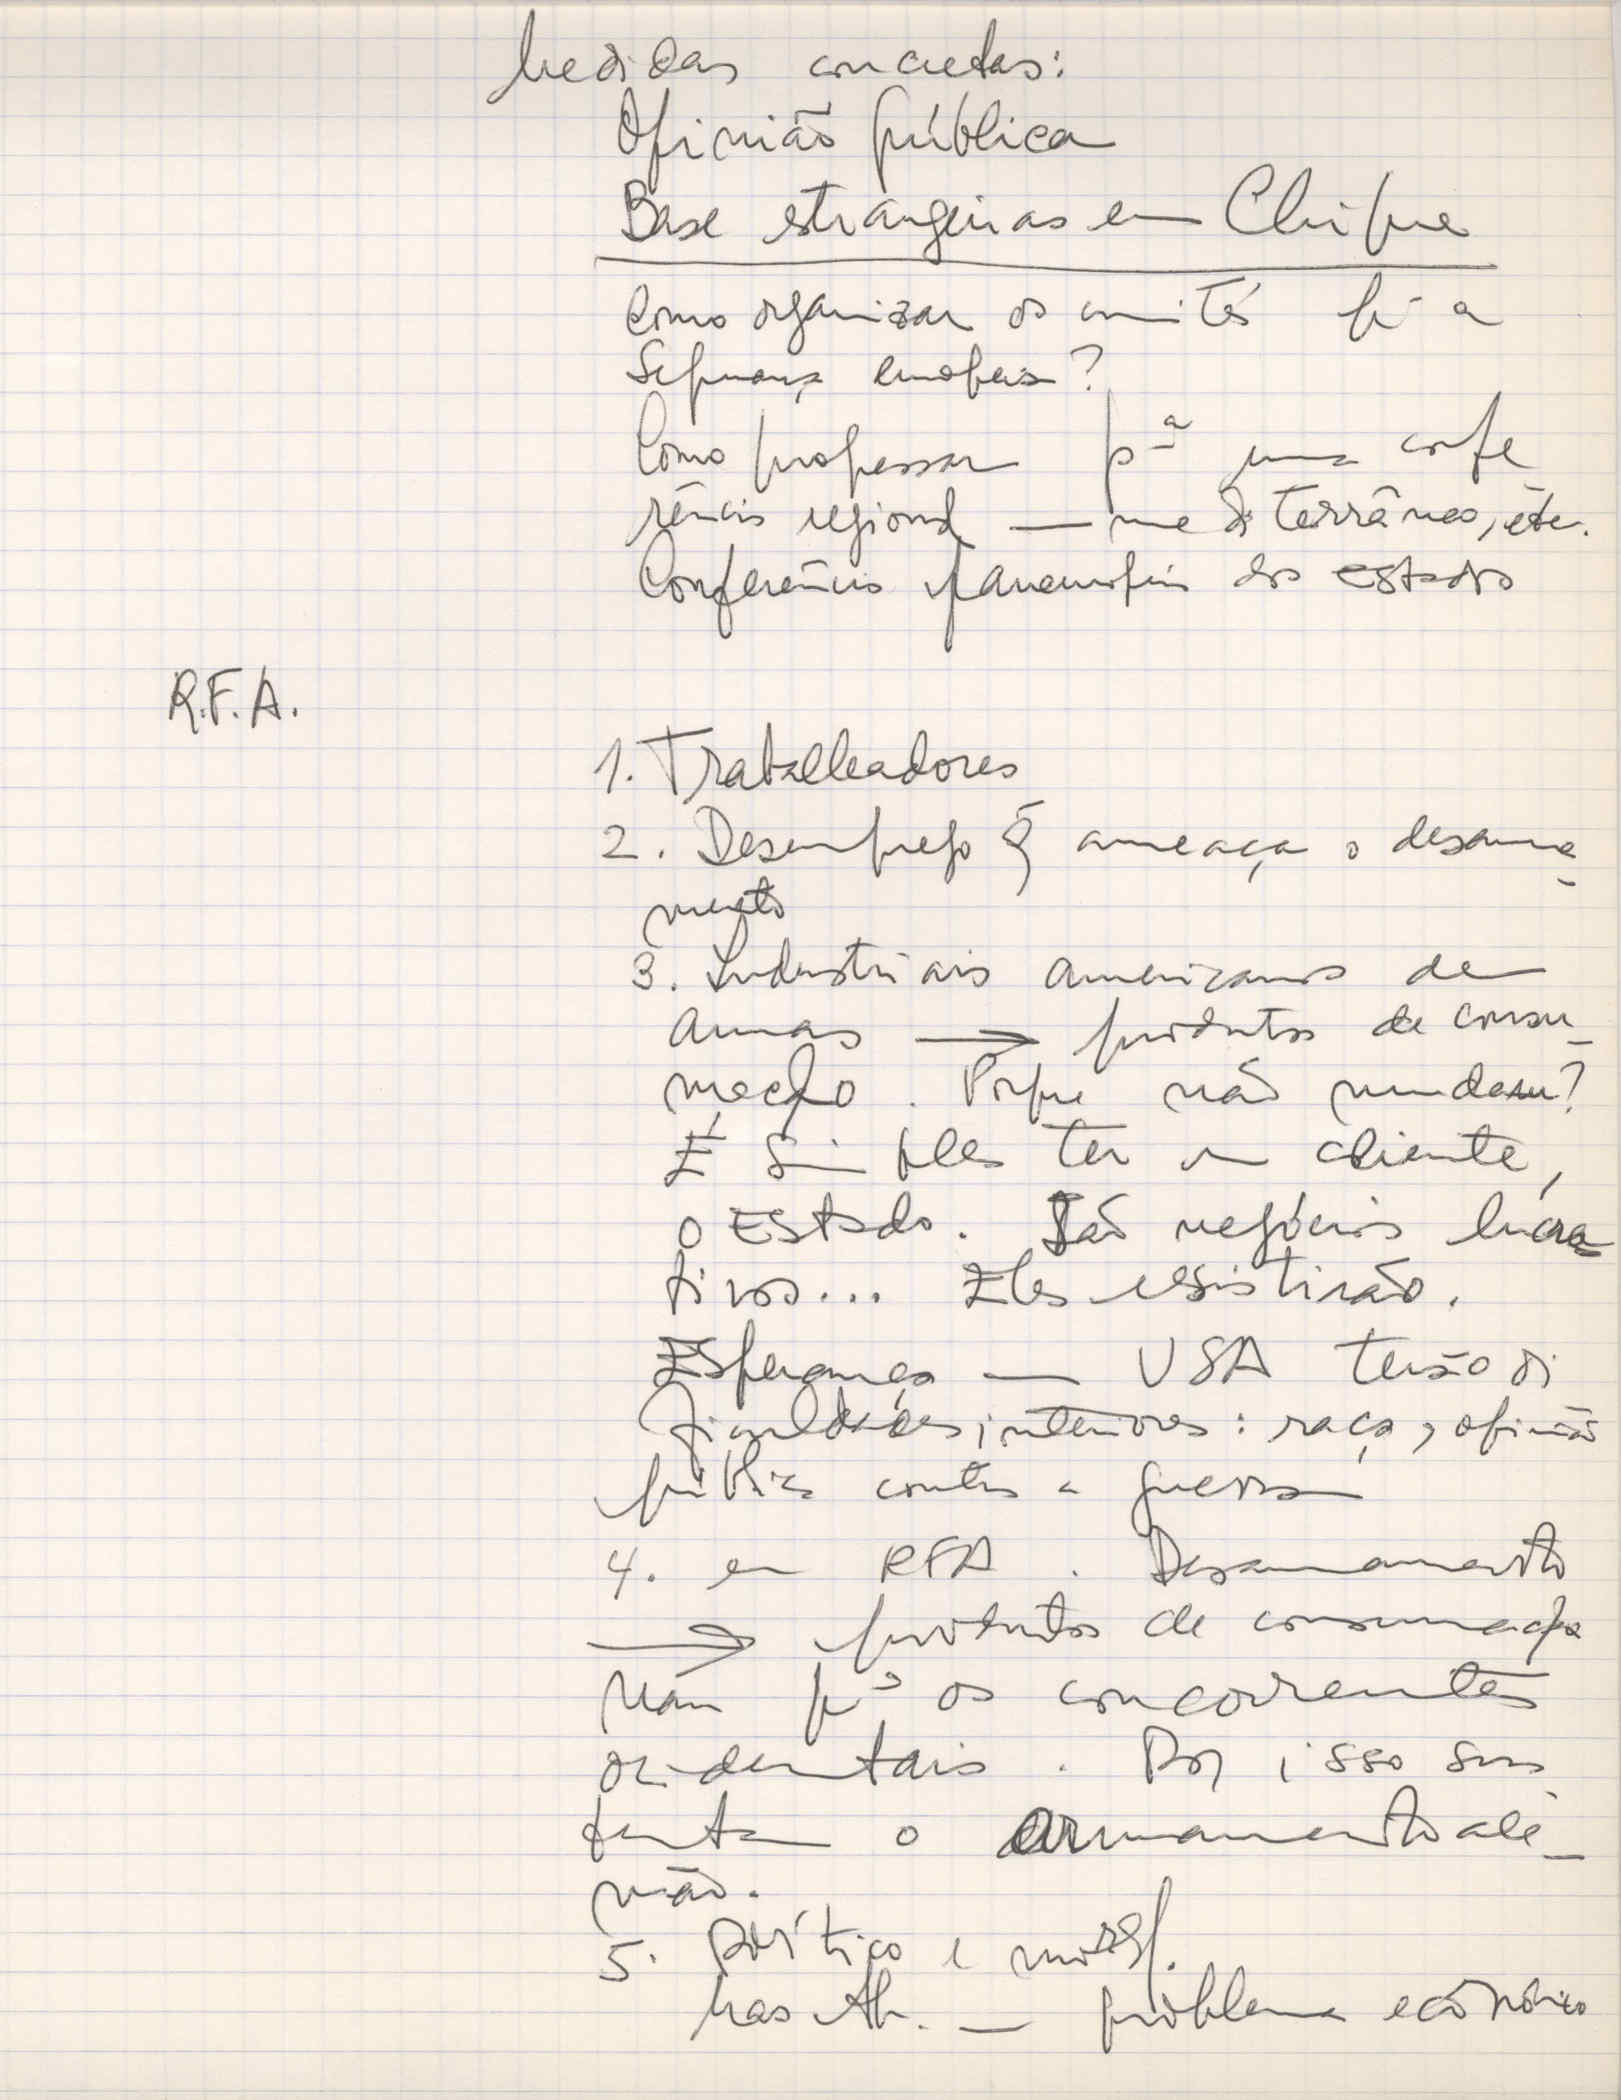 Medidas concretas:
Opinião pública
Base estrangeiras em Chipre
Como organizar os comités pª a
Segurança europeia?
Como professar pª uma confe
rência regional — mediterrâneo, etc.
Conferência paneuropeia dos estados
R.F.A.
1. Trabalhadores
2. Desemprego q̃ ameaça o desarma-
mento
3. Industriais americanos de
armas → produtos de consu-
mação. Porque não mudam?
É simples ter um cliente,
o Estado. São negócios lucra
tivos... Eles resistirão.
Esperança — USA terão di
ficuldades interiores: raça, opinião
pública contra a guerra
4. em RFA. Desarmamento
→ produtos de consumação
Nam pª os concorrentes
ocidentais. Por isso sus
tenta o armamento ale-
mão.
5. Político e moral.
Mas Al. — problema económico